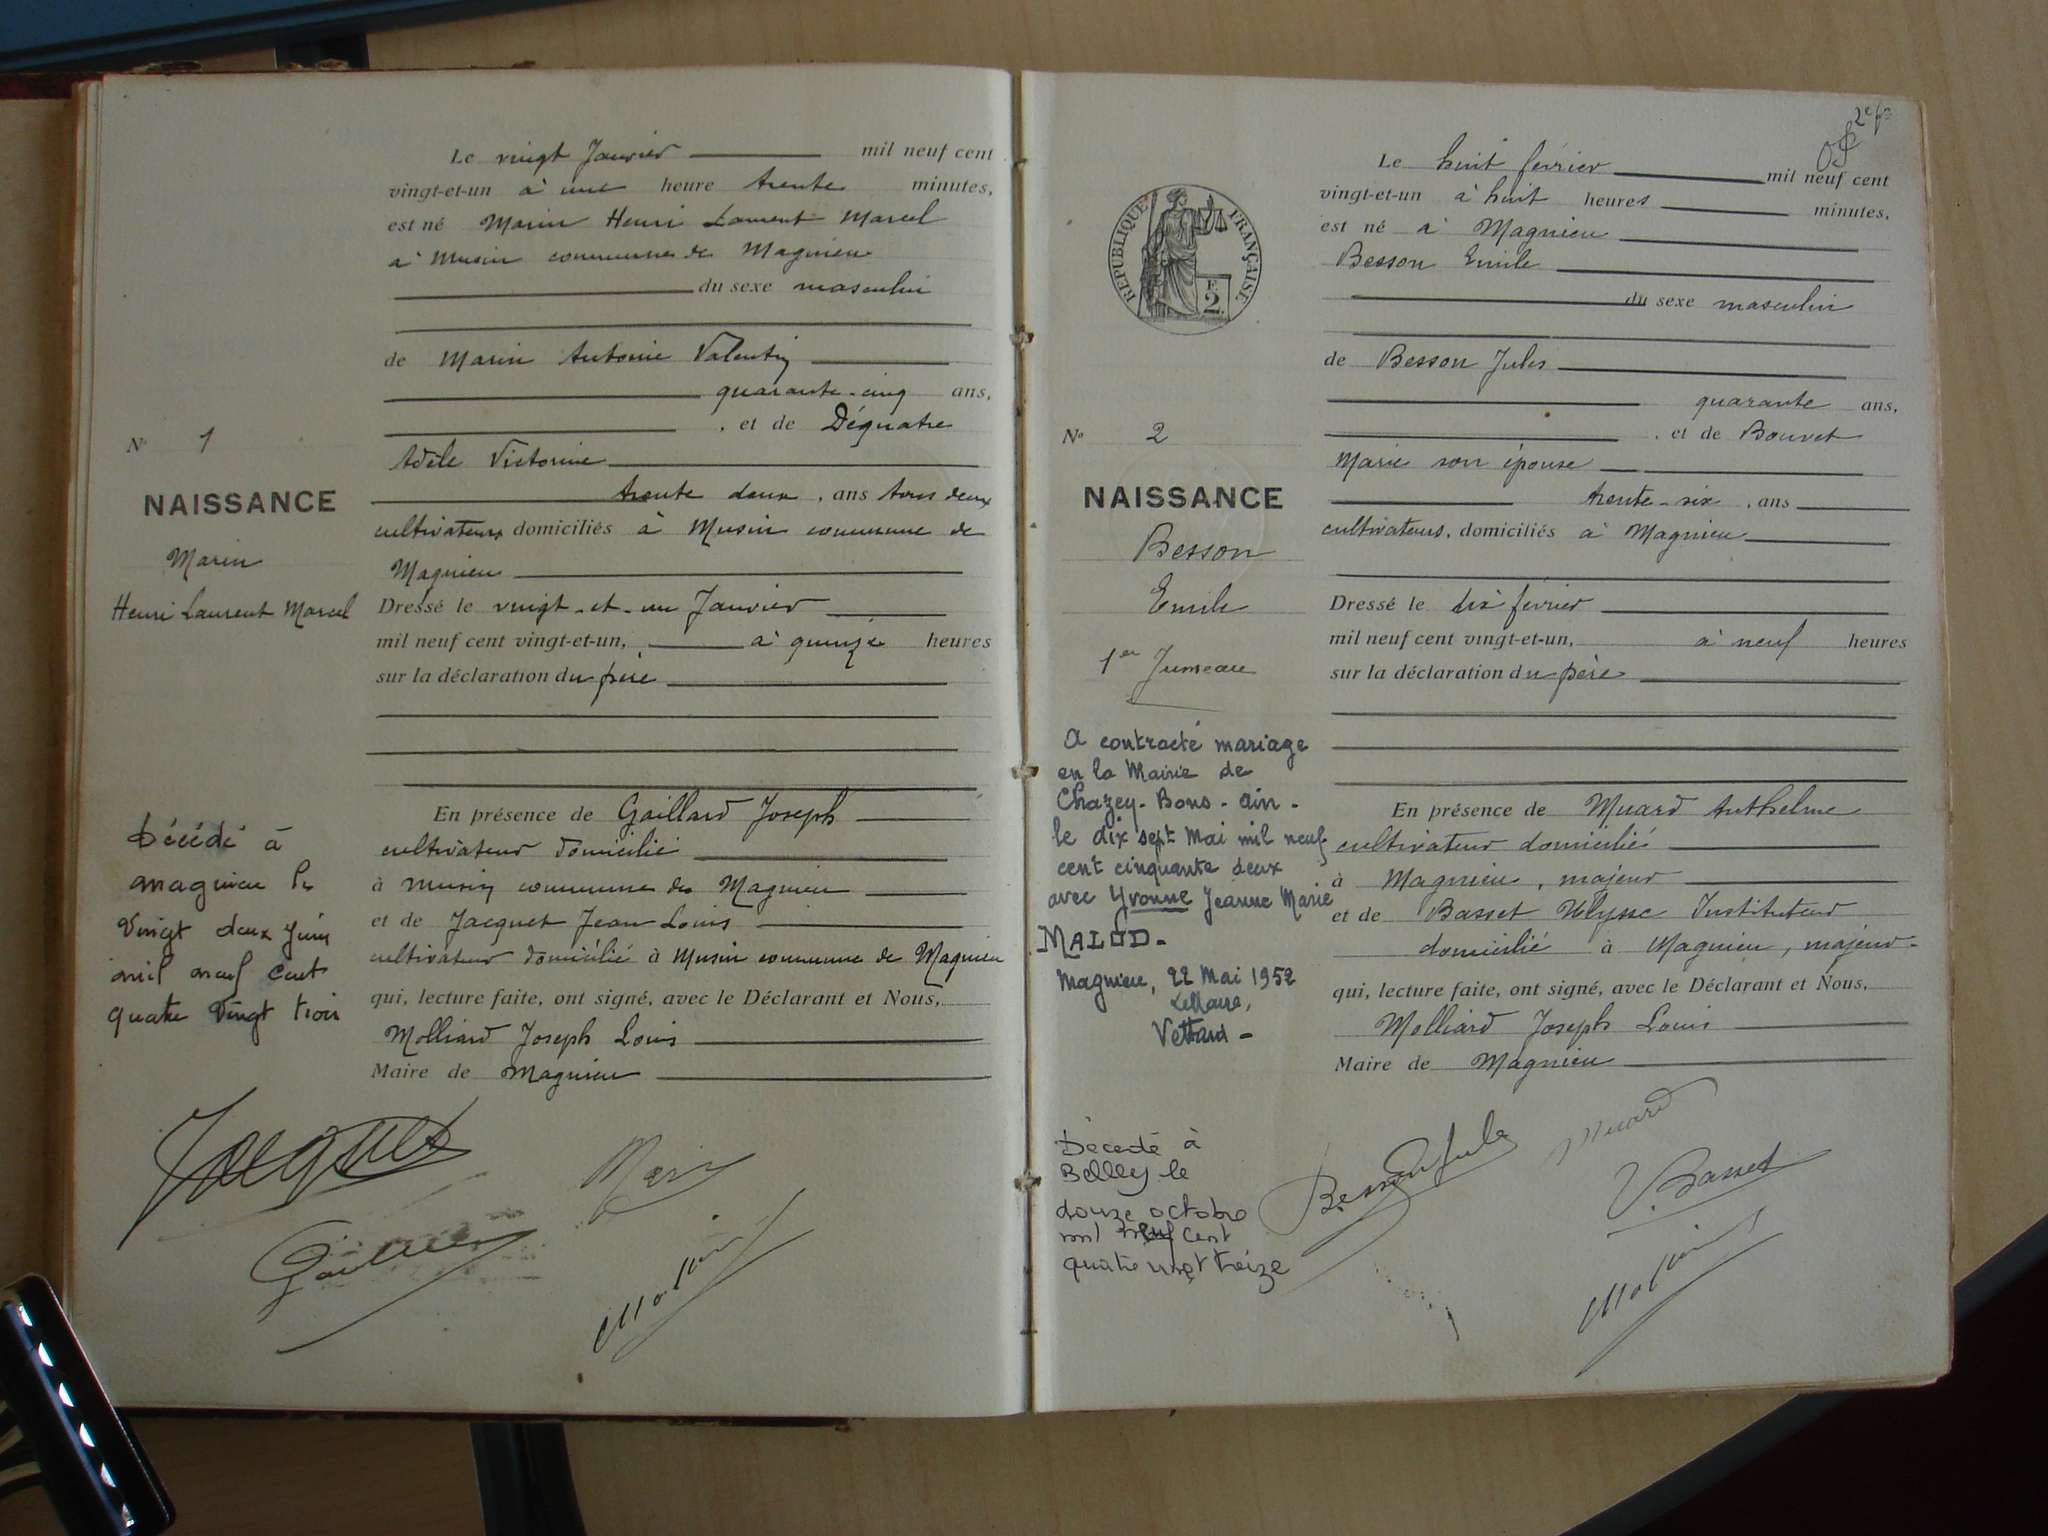 Le vingt Janvier mil neuf cent
vingt-et-un à une heure trente minutes,
est né Marin Henri Laurent Marcel
à Musin commune de Magnieu
du sexe masculin
de Marin Antonie Valentin
quarante-cinq ans,
, et de Déquatre
Adèle Victorine
trente deux, ans tous deux
cultivateurs domiciliés à Musin commune de
Magnieu
Dressé le vingt-et-un Janvier
mil neuf cent vingt-et-un, à quinze heures
sur la déclaration du père
En présence de Gaillard Joseph
cultivateur domicilié
à Musin commune de Magnieu
et de Jacquet Jean Louis
cultivateur domicilié à Musin commune de Magnieu
qui, lecture faite, ont signé, avec le Déclarant et Nous,
Molliard Joseph Louis
Maire de Magnieu
N° 1
NAISSANCE
Marin
Henri Laurent Marcel
Décédé à
magnieu le
vingt deux juin
mil neuf cent
quatre vingt trois
Jacquet
Marin
Le huit février mil neuf cent
vingt-et-un à huit heures minutes,
est né à Magnieu
Besson Emile
du sexe masculin
de Besson Jules
quarante ans,
, et de Bouvet
Marie son épouse
trente-six, ans
cultivateurs, domiciliés à Magnieu
Dressé le dix février
mil neuf cent vingt-et-un, à neuf heures
sur la déclaration du père
En présence de Muard Anthelme
cultivateur domicilié
à Magnieu, majeur
et de Basset Ulysse Instituteur
domicilié à Magnieu, majeur-
qui, lecture faite, ont signé, avec le Déclarant et Nous,
Molliard Joseph Louis
Maire de Magnieu
RÉPUBLIQUE FRANÇAISE
F. 2.
N° 2
NAISSANCE
Besson
Emile
1er Jumeau
A contracté mariage
en la Mairie de
Chazey-Bons-Ain-
le dix sept Mai mil neuf
cent cinquante deux
avec Yvonne Jeanne Marie
MALOD-
Magnieu, 22 Mai 1952
Le Maire,
Vettard-
Décédé à
Belley le
douze octobre
mil neuf cent
quatre vingt treize
Besson Jules
Muard
U. Basset